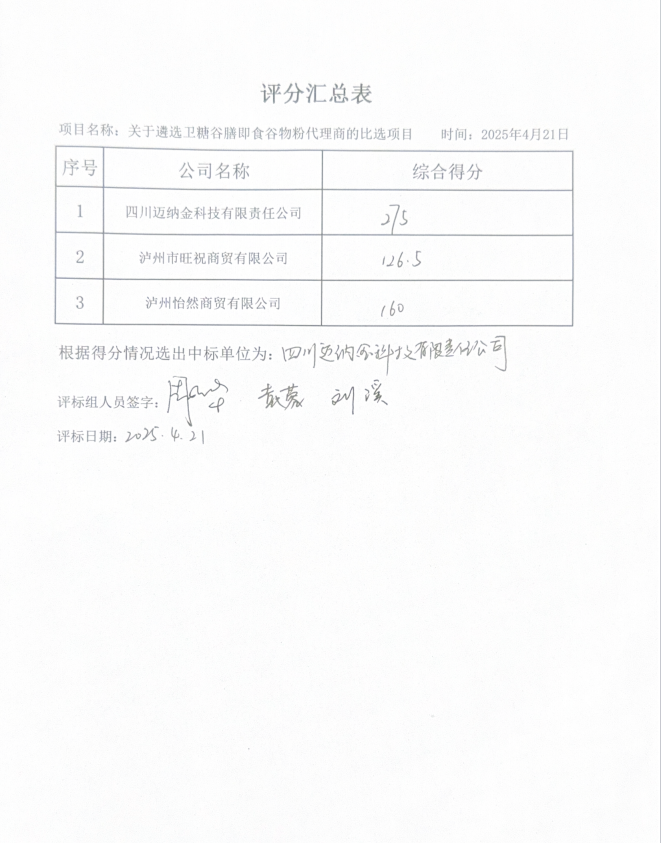 评分汇总表
项目名称：关于遴选卫糖谷膳即食谷物粉代理商的比选项目 时间：2025年4月21日
序号 公司名称 综合得分
1 四川迈纳金科技有限责任公司 275
2 泸州市旺祝商贸有限公司 126.5
3 泸州怡然商贸有限公司 160
根据得分情况选出中标单位为：四川迈纳金科技有限责任公司
评标组人员签字： 刘溪
评标日期：2025.4.21